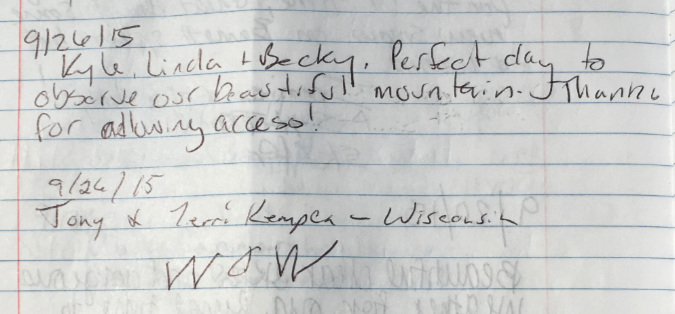 9/26/15
Kyle, Linda + Becky. Perfect day to
observe our beautifull mountain. Thanks
for allowing access!
9/26/15
Tony & Terri Kempen - Wisconsin
WOW